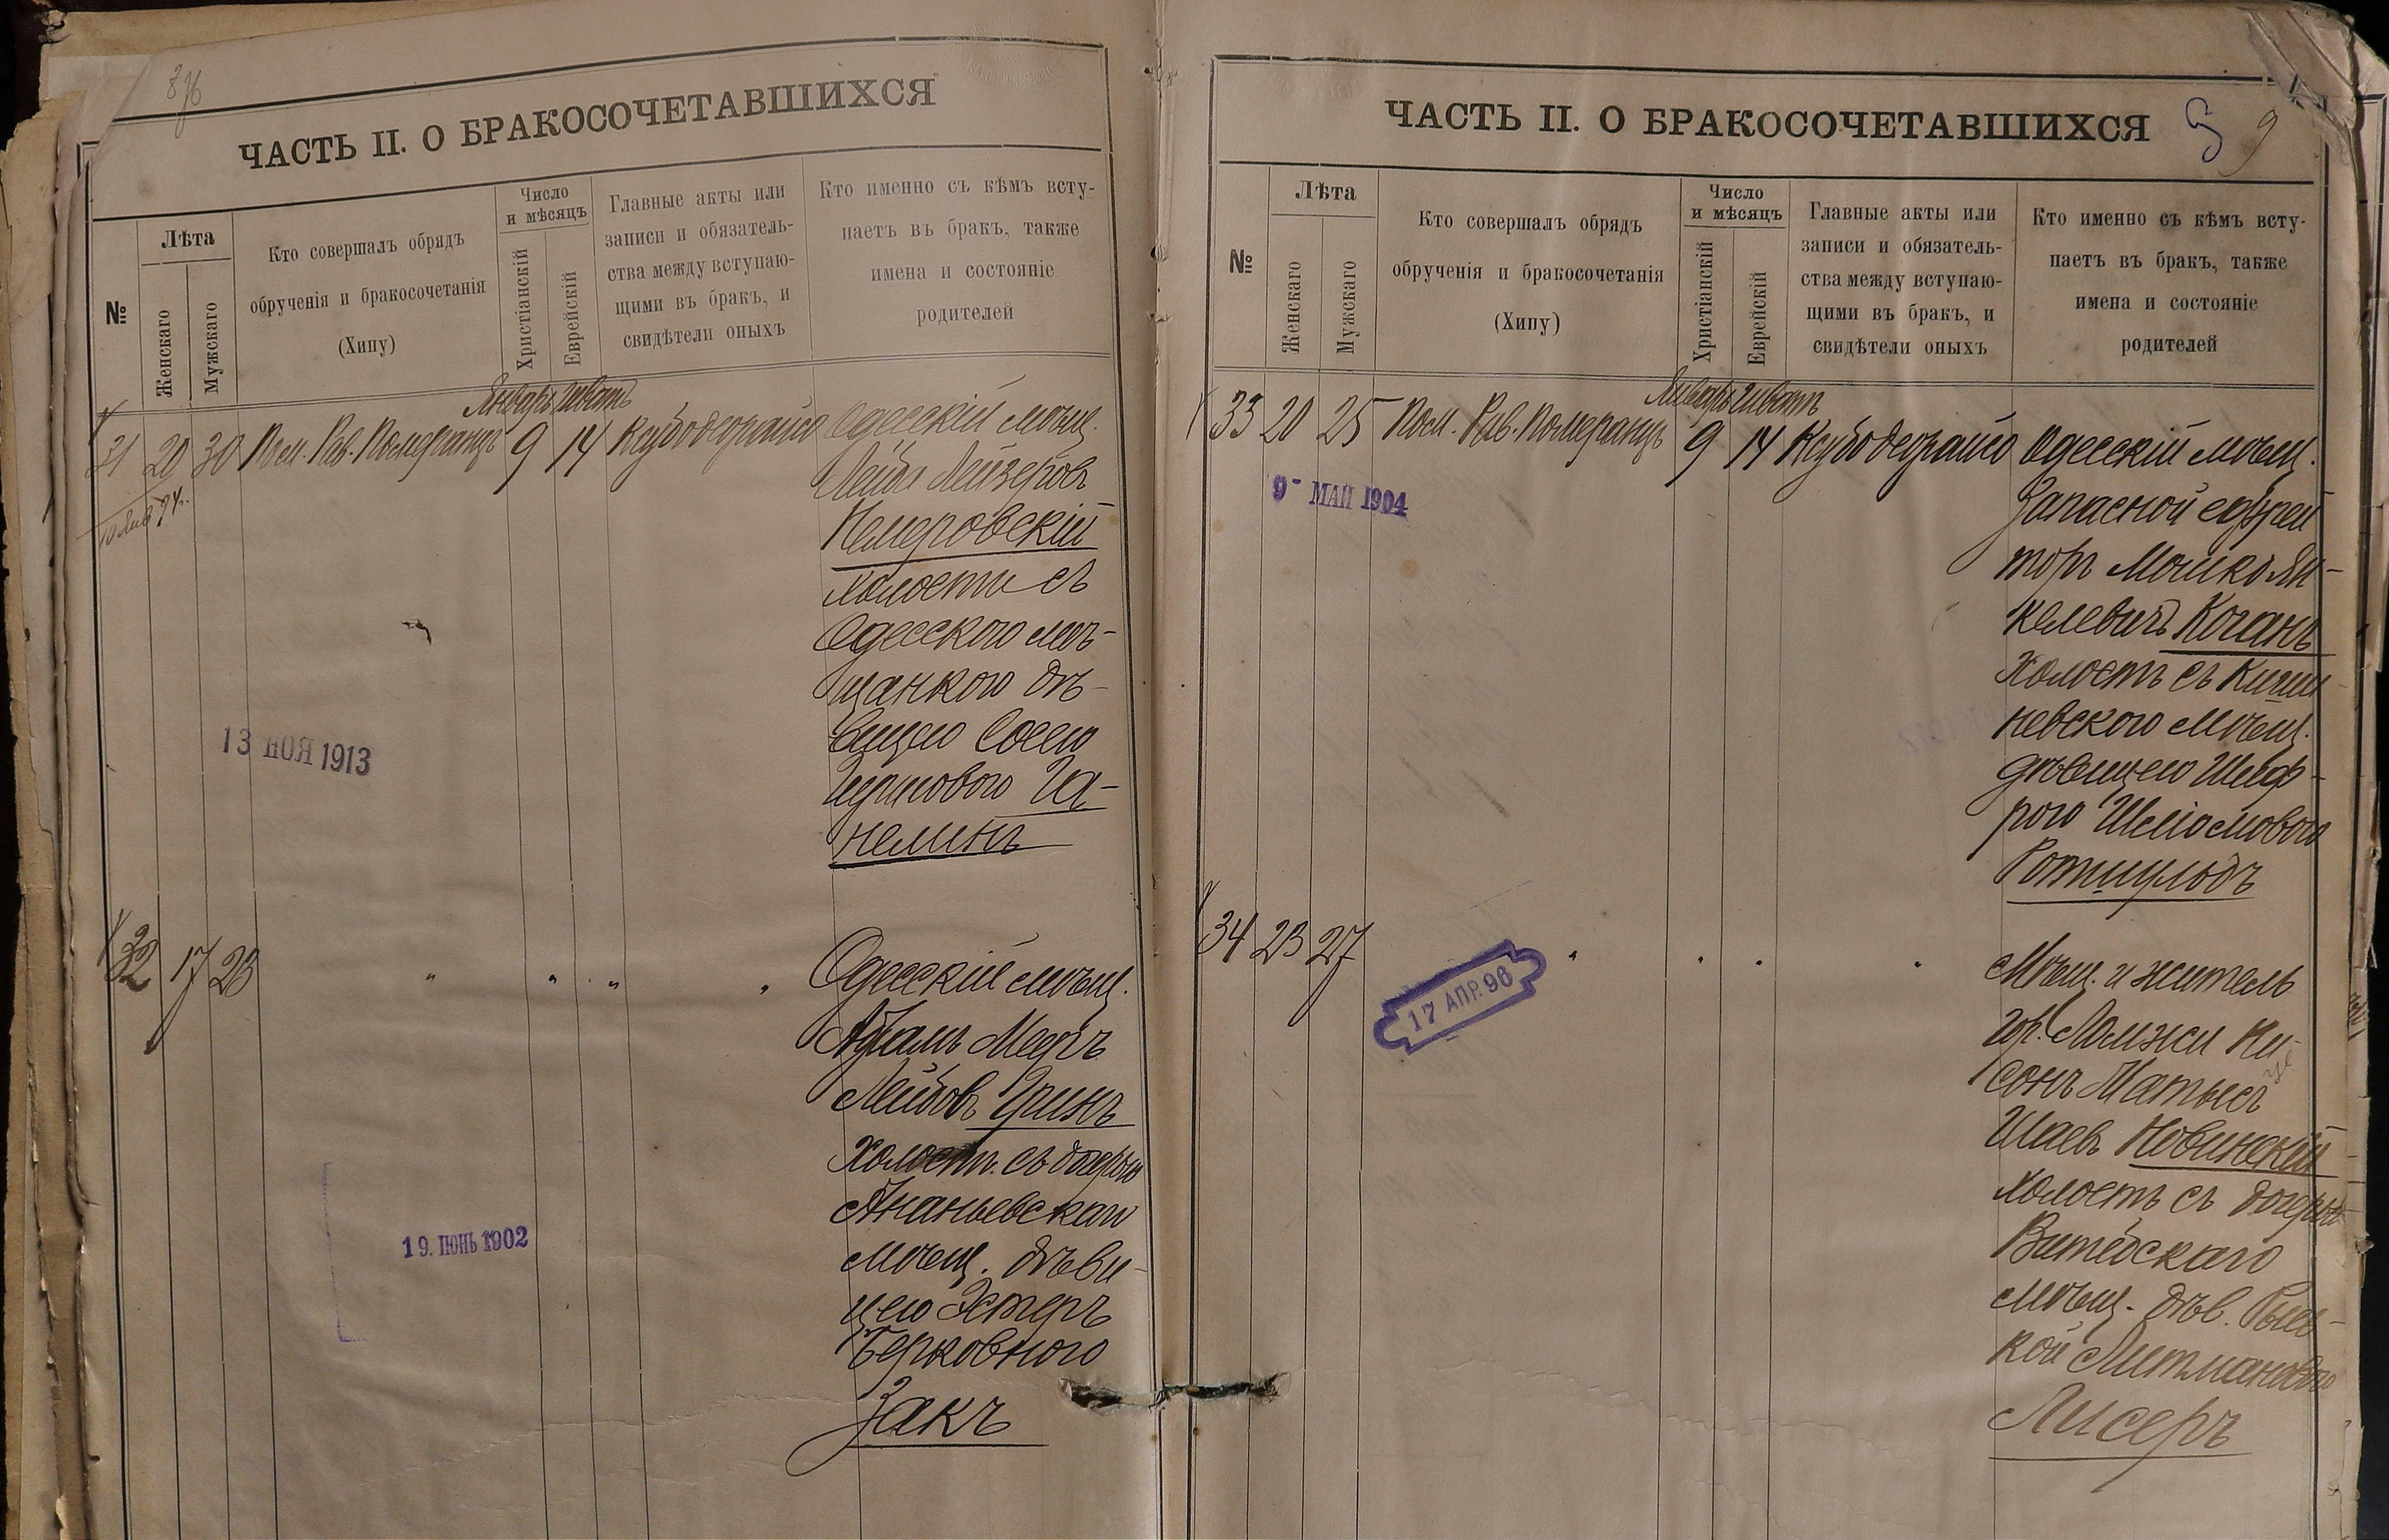 876
ЧАСТЬ II. О БРАКОСОЧЕТАВШИХСЯ
№
Лѣта
Женскаго
Мужскаго
Кто совершалъ обрядъ
обрученія и бракосочетанія
(Хипу)
Число
и мѣсяцъ
Христіанскій
Еврейскій
Главные акты или
записи и обязатель-
ства между вступаю-
щими въ бракъ, и
свидѣтели оныхъ
Кто именно съ кѣмъ всту-
паетъ въ бракъ, также
имена и состояніе
родителей
Январь Шватъ
31 20 30 Пом. Рав. Померанцъ 9 14 Ксубо деорайсо Одесскій мѣщ.
Лейба Лейзеровъ
Немеровскій
холостъ съ
Одесскою мѣ-
щанкою дѣ-
вицею Сосею
Ицковою Га-
нелинъ
13 НОЯ 1913
32 17 23 " " " " Одесскій мѣщ.
Абрамъ Мееръ
Лейбовъ Гринъ
Холост. съ дочерью
Ананьевскаго
Мѣщ. дѣви-
цею Эстеръ
Берковною
Закъ
19. ИЮНЬ 1902
ЧАСТЬ II. О БРАКОСОЧЕТАВШИХСЯ
9
№
Лѣта
Женскаго
Мужскаго
Кто совершалъ обрядъ
обрученія и бракосочетанія
(Хипу)
Число
и мѣсяцъ
Христіанскій
Еврейскій
Главные акты или
записи и обязатель-
ства между вступаю-
щими въ бракъ, и
свидѣтели оныхъ
Кто именно съ кѣмъ всту-
паетъ въ бракъ, также
имена и состояніе
родителей
Январь Шватъ
33 20 25 Пом. Рав. Померанцъ 9 14 Ксубо деорайсо Одесскій мѣщ.
Запасной ефрей
торъ Мошко Ян-
келевичъ Коганъ
Холостъ съ Киши
невскою Мѣщ.
дѣвицею Шейф-
рою Шліомовою
Ротшульдъ
9- МАЙ 1904
34 23 27 " " " " Мѣщ. и житель
гор. Ломжи Ни-
сонъ Матысъ
Шаевъ Новинскій
холостъ съ дочерью
Витебскаго
Мѣщ. дѣв. Рысь-
кой Литмановою
Лисеръ
17 АПР. 96